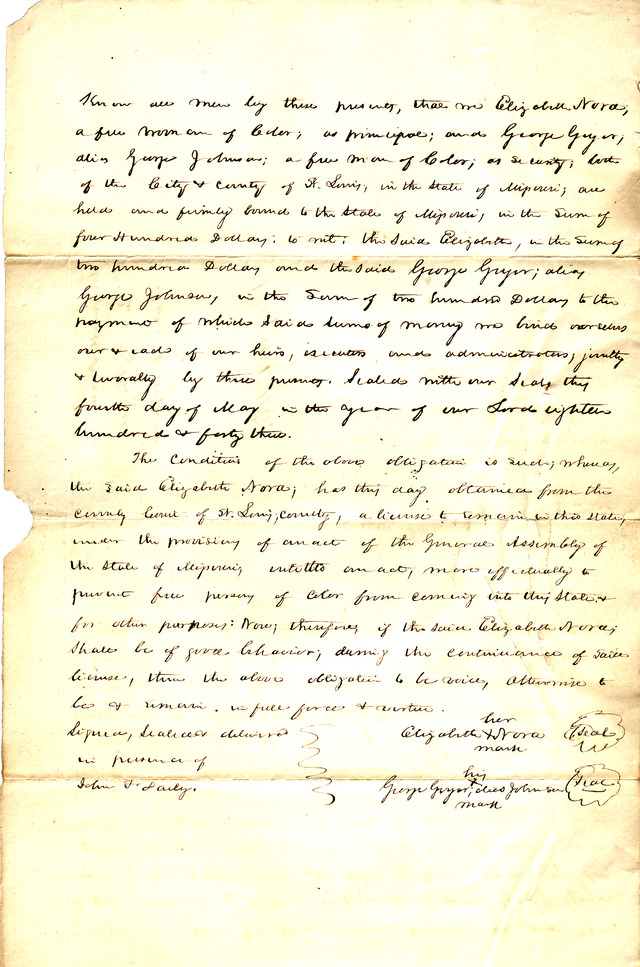 Know all men by these presents, that we Elizabeth Nora,
a free woman of Color; as principal; and George Geyer;
alias George Johnson; a free man of Color; as security; both
of the City & county of St. Louis, in the State of Missouri; are
held and firmly bound to the State of Missouri, in the Sum of
four Hundred Dollars: to wit: the said Elizabeth, in the sum of
two hundred Dollars and the said George Geyer; alias
George Johnson, in the Sum of two hundred Dollars to the
payment of which said sums of money we bind ourselves
our & each of our heirs, executors and administrators, jointly
& severally by these presents. Sealed with our Seals this
fourth day of May in the year of our Lord eighteen
hundred & forty three.
The Condition of the above obligation is such; whereas,
the said Elizabeth Nora; has this day obtained from the
county Court of St. Louis, county, a license to remain in this State,
under the provisions of an act of the General Assembly of
the State of Missouri, entitled an act, more effectually to
prevent free persons of Color from coming into this State &
for other purposes: Now; therefore, if the said Elizabeth Nora;
shall be of good behavior; during the continuance of said
license, then the above obligation to be void, otherwise to
be & remain in full force & virtue.
Signed, Sealed & delivered
in presence of
her
Elizabeth X Nora Seal
mark
his
George Geyer, alias Johnson Seal
mark